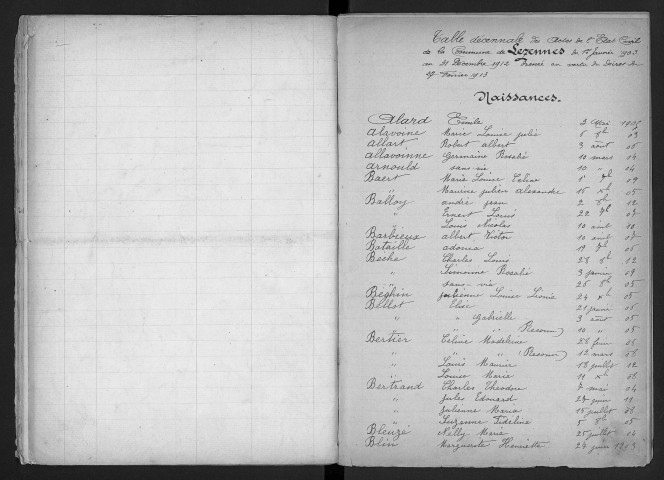 Table décennale des Actes de l'Etat Civil
de la Commune de Lezennes du 1er Janvier 1903
au 31 Décembre 1912 Dressée en vertu du Décret du
Février 1913
Naissances.
Alard Emile 2 Mai 1905
Alavoine Marie Louise Julie 6 8b 03
Allart Robert Albert 3 août 06
Allavoinne Germaine Rosalie 10 mars 04
Arnould sans-vie 10 " 04
Baert Marie Louise Céline 1er 7b 09
" Maurice Julien Alexandre 15 xb 05
Balloy André Jean 2 8b 12
" Ernest Louis 22 7b 07
" Louis Nicolas 10 août 10
Barbieux Albert Victor 10 août 08
Bataille Adonia 19 7b 06
Becke Charles Louis 28 8b 12
" Simonne Rosalie 3 janvier 09
" sans-vie 26 8b 05
Béghin Julienne Louise Léonie 24 xb 05
Bellot Elise 21 juin 06
" " Gabrielle 3 août 05
" " " (Reconn) 10 " 05
Bertier Céline Madeleine 28 février 08
" " " (Reconn) 12 mars 08
" Louis Maurice 18 juillet 12
" Louise Marie 11 xb 08
Bertrand Charles Théodore 7 mai 04
" Jules Edouard 27 juin 11
" Julienne Maria 15 juillet 08
" Suzanne Fidéline 5 8b 05
Bleuzé Nelly Maria 25 juillet 04
Blin Marguerite Henriette 24 juin 1903